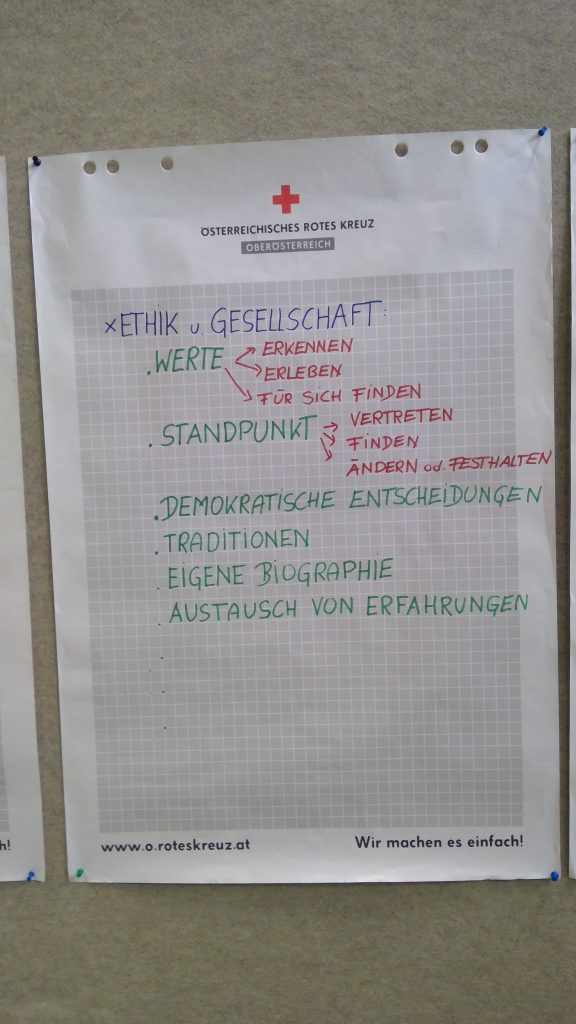 ÖSTERREICHISCHES ROTES KREUZ
OBERÖSTERREICH
×ETHIK u. GESELLSCHAFT:
.WERTE → ERKENNEN
→ ERLEBEN
→ FÜR SICH FINDEN
. STANDPUNKT → VERTRETEN
→ FINDEN
→ ÄNDERN od. FESTHALTEN
. DEMOKRATISCHE ENTSCHEIDUNGEN
. TRADITIONEN
. EIGENE BIOGRAPHIE
. AUSTAUSCH VON ERFAHRUNGEN
.
.
.
www.o.roteskreuz.at
Wir machen es einfach!
h!